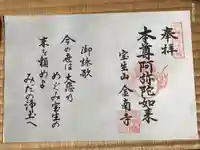 奉拝
本尊阿弥陀如来
宝生山 金南寺
御詠歌
今の世は大悲の
めぐみ宝生の
末を頼めよ
みだの浄土へ